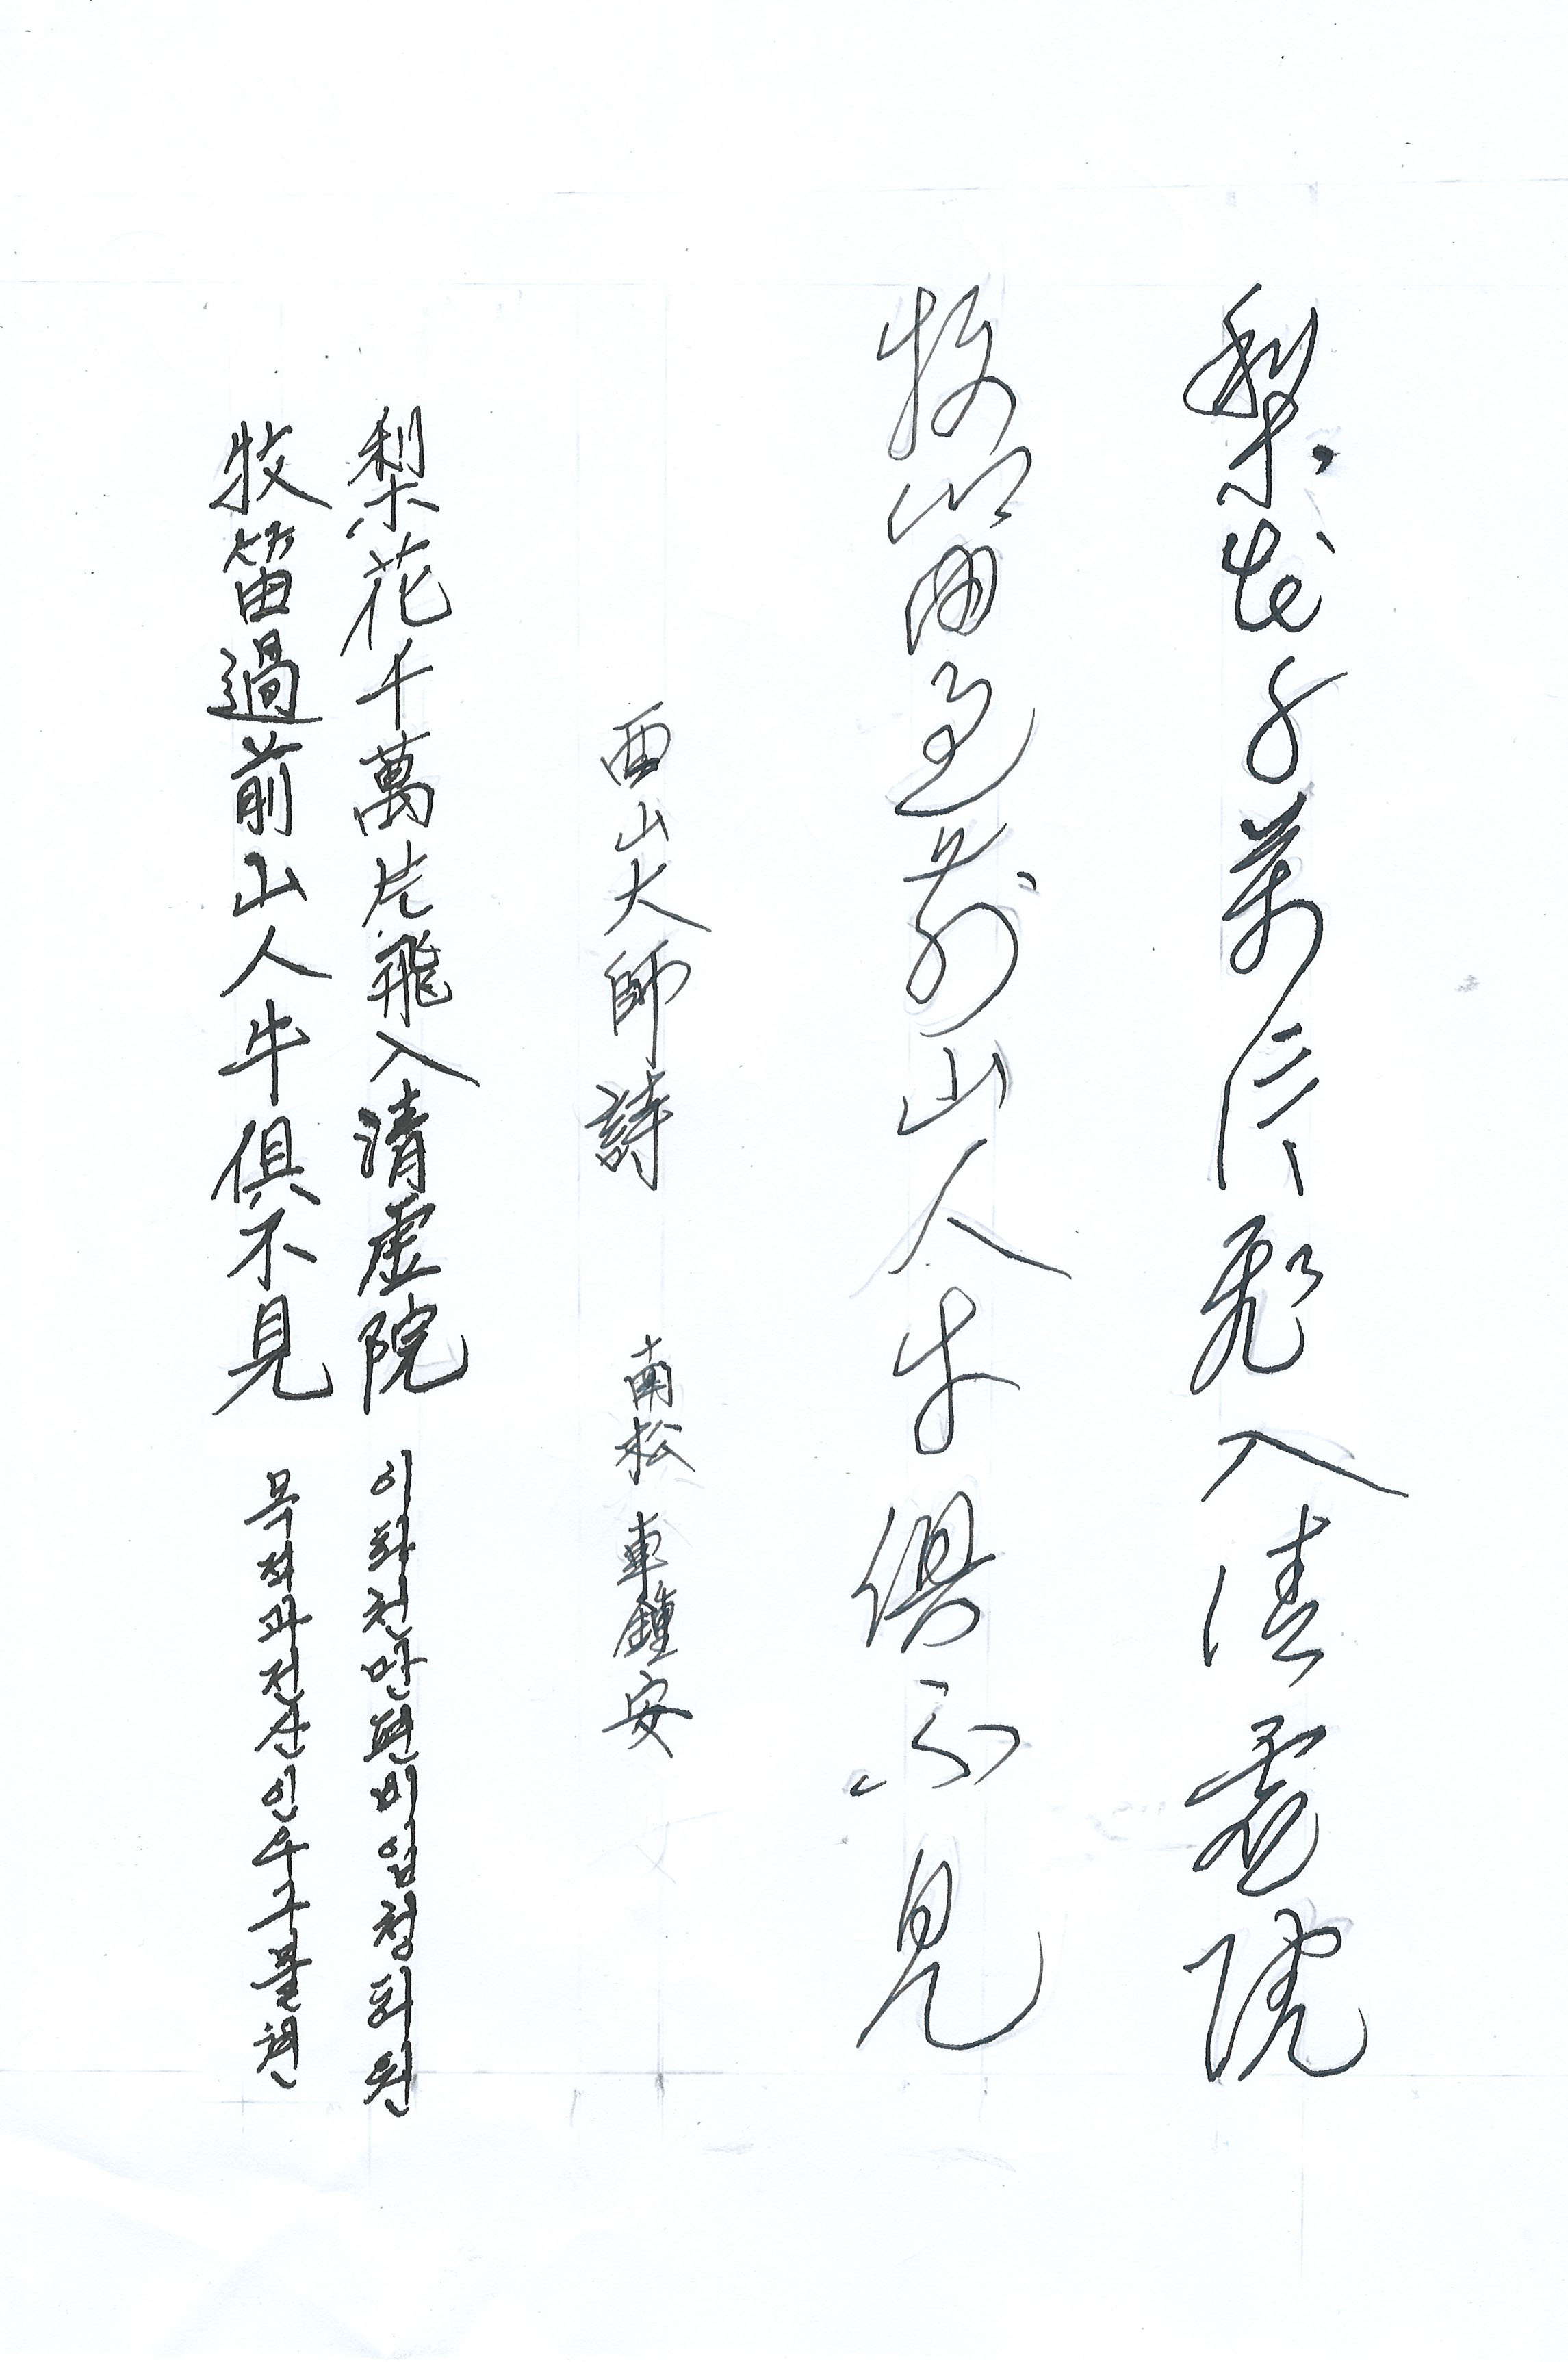 梨花千萬片飛入清虛院
牧笛過前山人牛俱不見
西山大師詩 南松 車鍾安
梨花千萬片飛入清虛院 이화천만편비입청허원
牧笛過前山人牛俱不見 목적과전산인우구불견